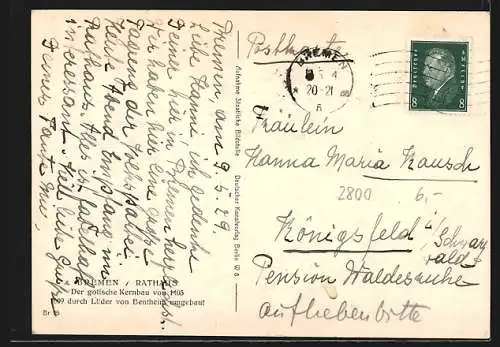 Bremen, am 9.5.29
Liebe Hanni, ich gedenke
Deiner hier in Bremen
Wir haben hier eine große
Tagung der
Heute Abend Empfang im
Rathaus. Alles ist fabelhaft
interessant. Viel liebe Grüße
Deines Tante
BREMEN / RATHAUS
Der gotische Kernbau von 1405
durch Lüder von Bentheim umgebaut
Br
Aufnahme Staatliche Bildstelle
Deutscher Kunstverlag Berlin W 8
Postkarte
BREMEN
20-21
8
8
Fräulein
Hanna Maria Rausch
2800 6,-
Königsfeld i/Schwarz
wald
Pension Waldesruhe
aufhebenbitte